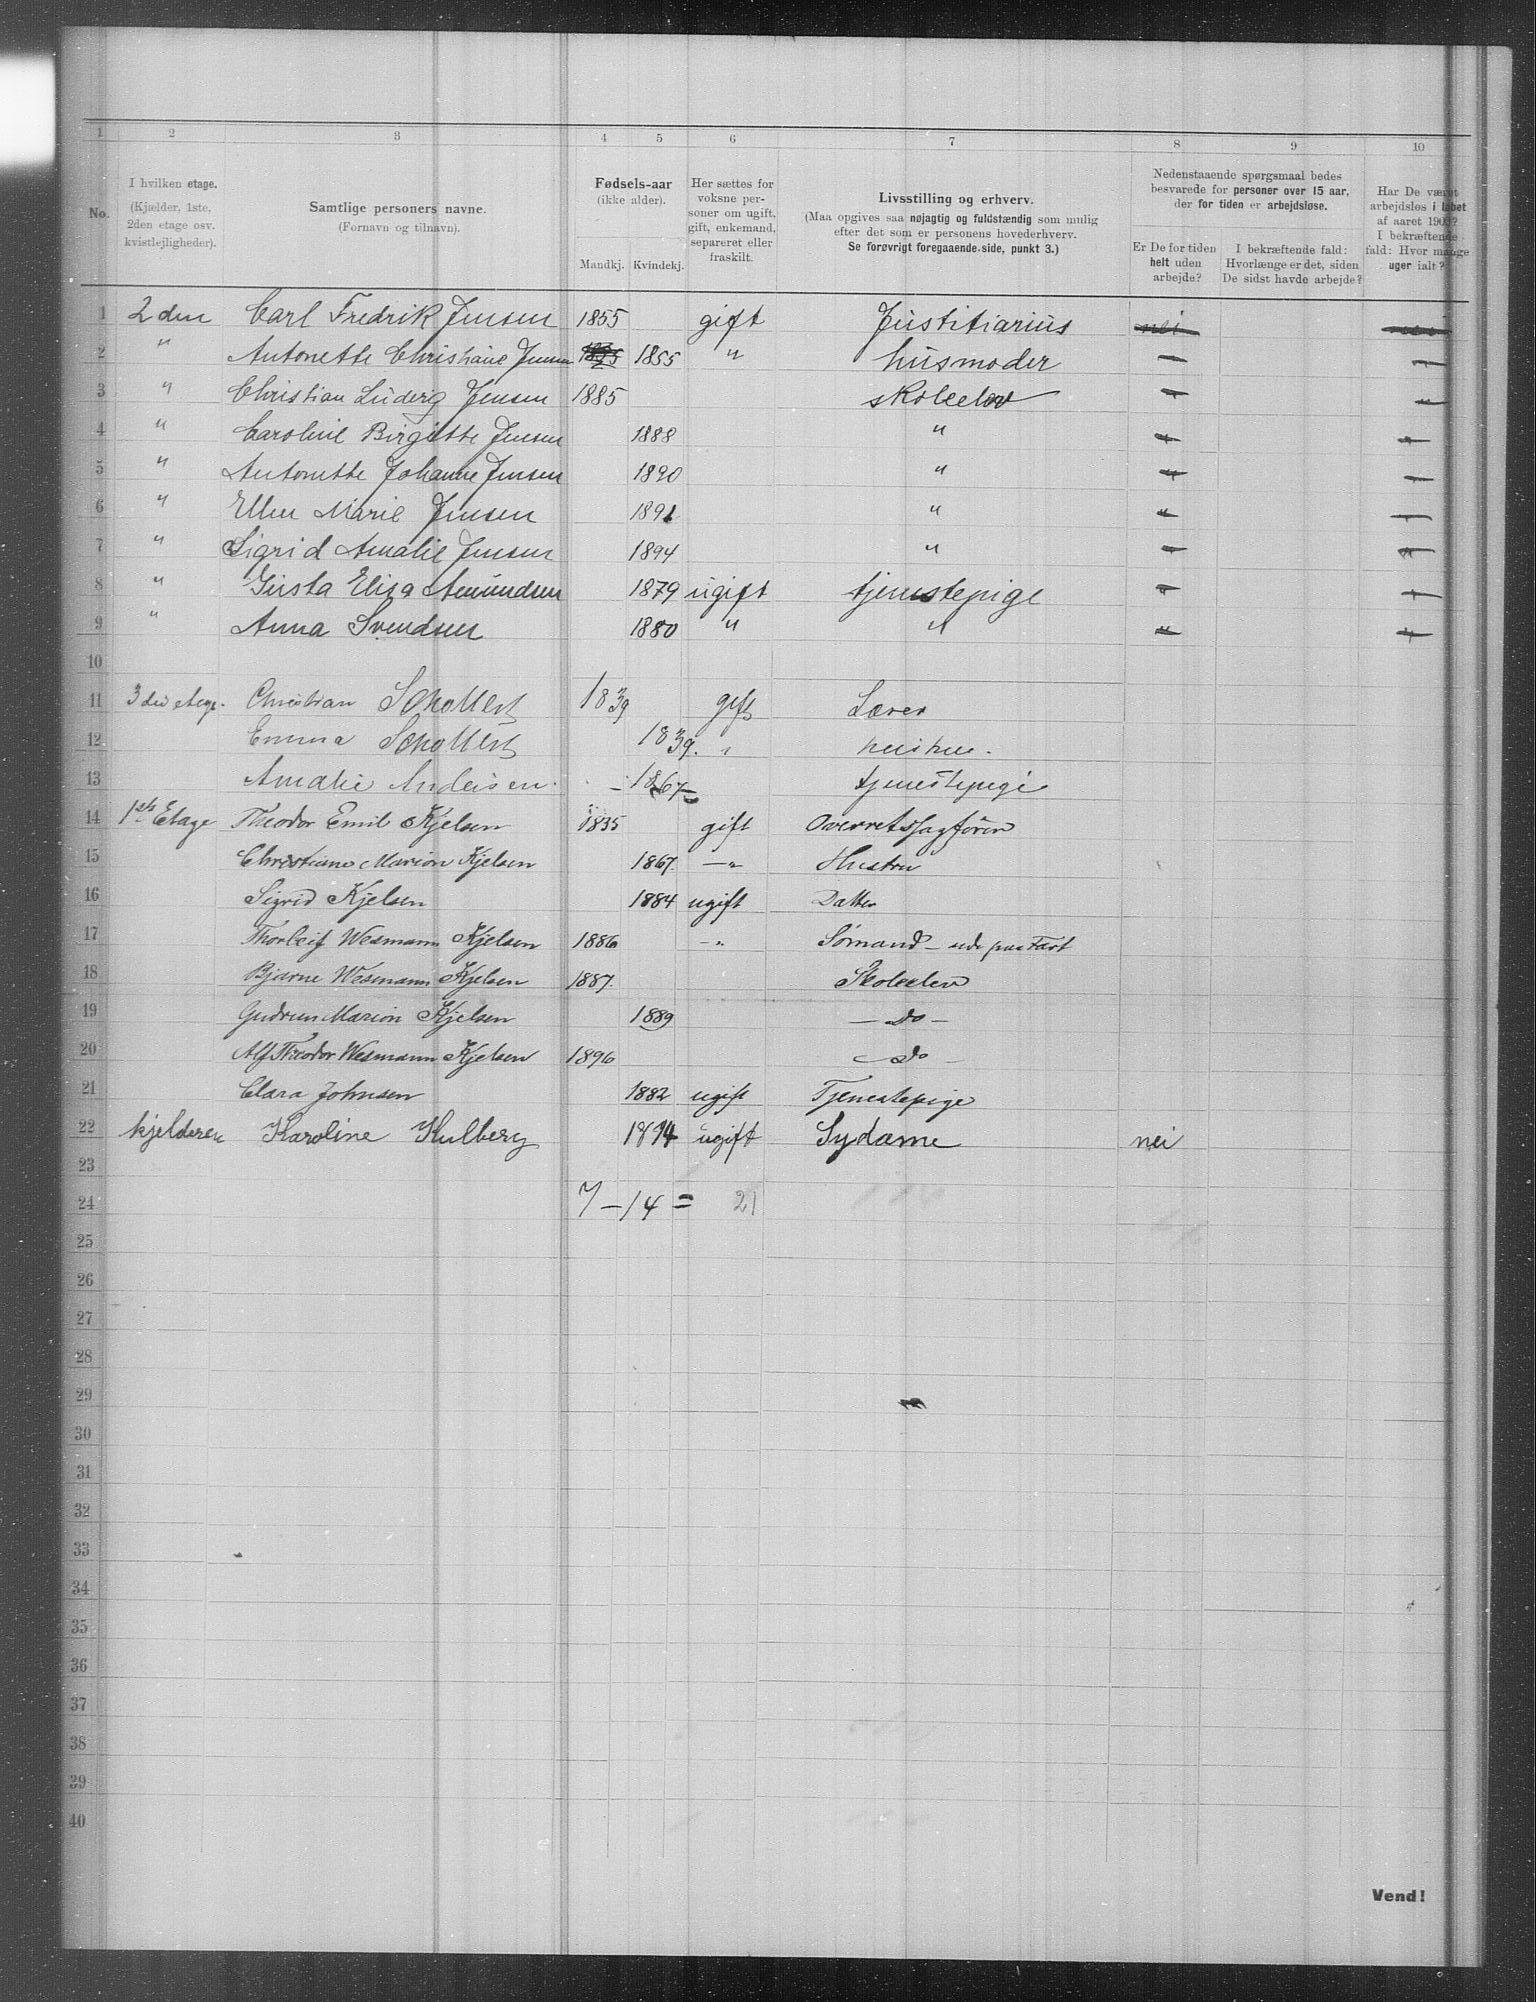 1 2 3 4 5 6 7 8 9 10
No.
I hvilken etage.
(Kjælder, 1ste, 2den etage osv. kvistlejligheder).
Samtlige personers navne.
(Fornavn og tilnavn).
Fødsels-aar
(ikke alder).
Mandkj. Kvindekj.
Her sættes for voksne personer om ugift, gift, enkemand, separeret eller fraskilt.
Livsstilling og erhverv.
(Maa opgives saa nøjagtig og fuldstændig som mulig efter det som er personens hovederhverv.
Se forøvrigt foregaaende side, punkt 3.)
Nedenstaaende spørgsmaal bedes besvarede for personer over 15 aar, der for tiden er arbejdsløse.
Er De for tiden helt uden arbejde?
I bekræftende fald: Hvorlænge er det, siden De sidst havde arbejde?
Har De været arbejdsløs i løbet af aaret 190 ? I bekræftende fald: Hvor mange uger ialt?
1 2den Carl Fredrik Jensen 1855 gift Justitiarius nei nei
2 " Antonette Christiane Jensen 1855 " husmoder
3 " Christian Ludvig Jensen 1885 skoleelev
4 " Caroline Birgitte Jensen 1888 "
5 " Antonette Johanne Jensen 1890 "
6 " Ellen Marie Jensen 1891 "
7 " Sigrid Amalie Jensen 1894 "
8 " Gusta Eliza Amundsen 1879 ugift tjenestepige
9 " Anna Svendsen 1880 " "
10
11 3die etage. Christian Schollert 1839 gift Lærer
12 Emma Schollert 1839. " hustru.
13 Amalie Andersen. 1867 tjenestepige
14 1ste Etage Theodor Emil Kjelsen 1835 gift Overretssagfører
15 Christiane Marion Kjelsen 1867. —"— Hustru
16 Sigrid Kjelsen 1884 ugift Datter
17 Thorleif Wesmann Kjelsen 1886 —"— Sømand — ude paa Fart
18 Bjarne Wesmann Kjelsen 1887. Skoleelev
19 Gudrun Marion Kjelsen 1889 — Do —
20 Alf Theodor Wesmann Kjelsen 1896 — Do —
21 Clara Johnsen 1882 ugift Tjenestepige
22 kjelderen Karoline Hulberg ugift Sydame nei
23
24 7 — 14 = 21
25
26
27
28
29
30
31
32
33
34
35
36
37
38
39
40
Vend!